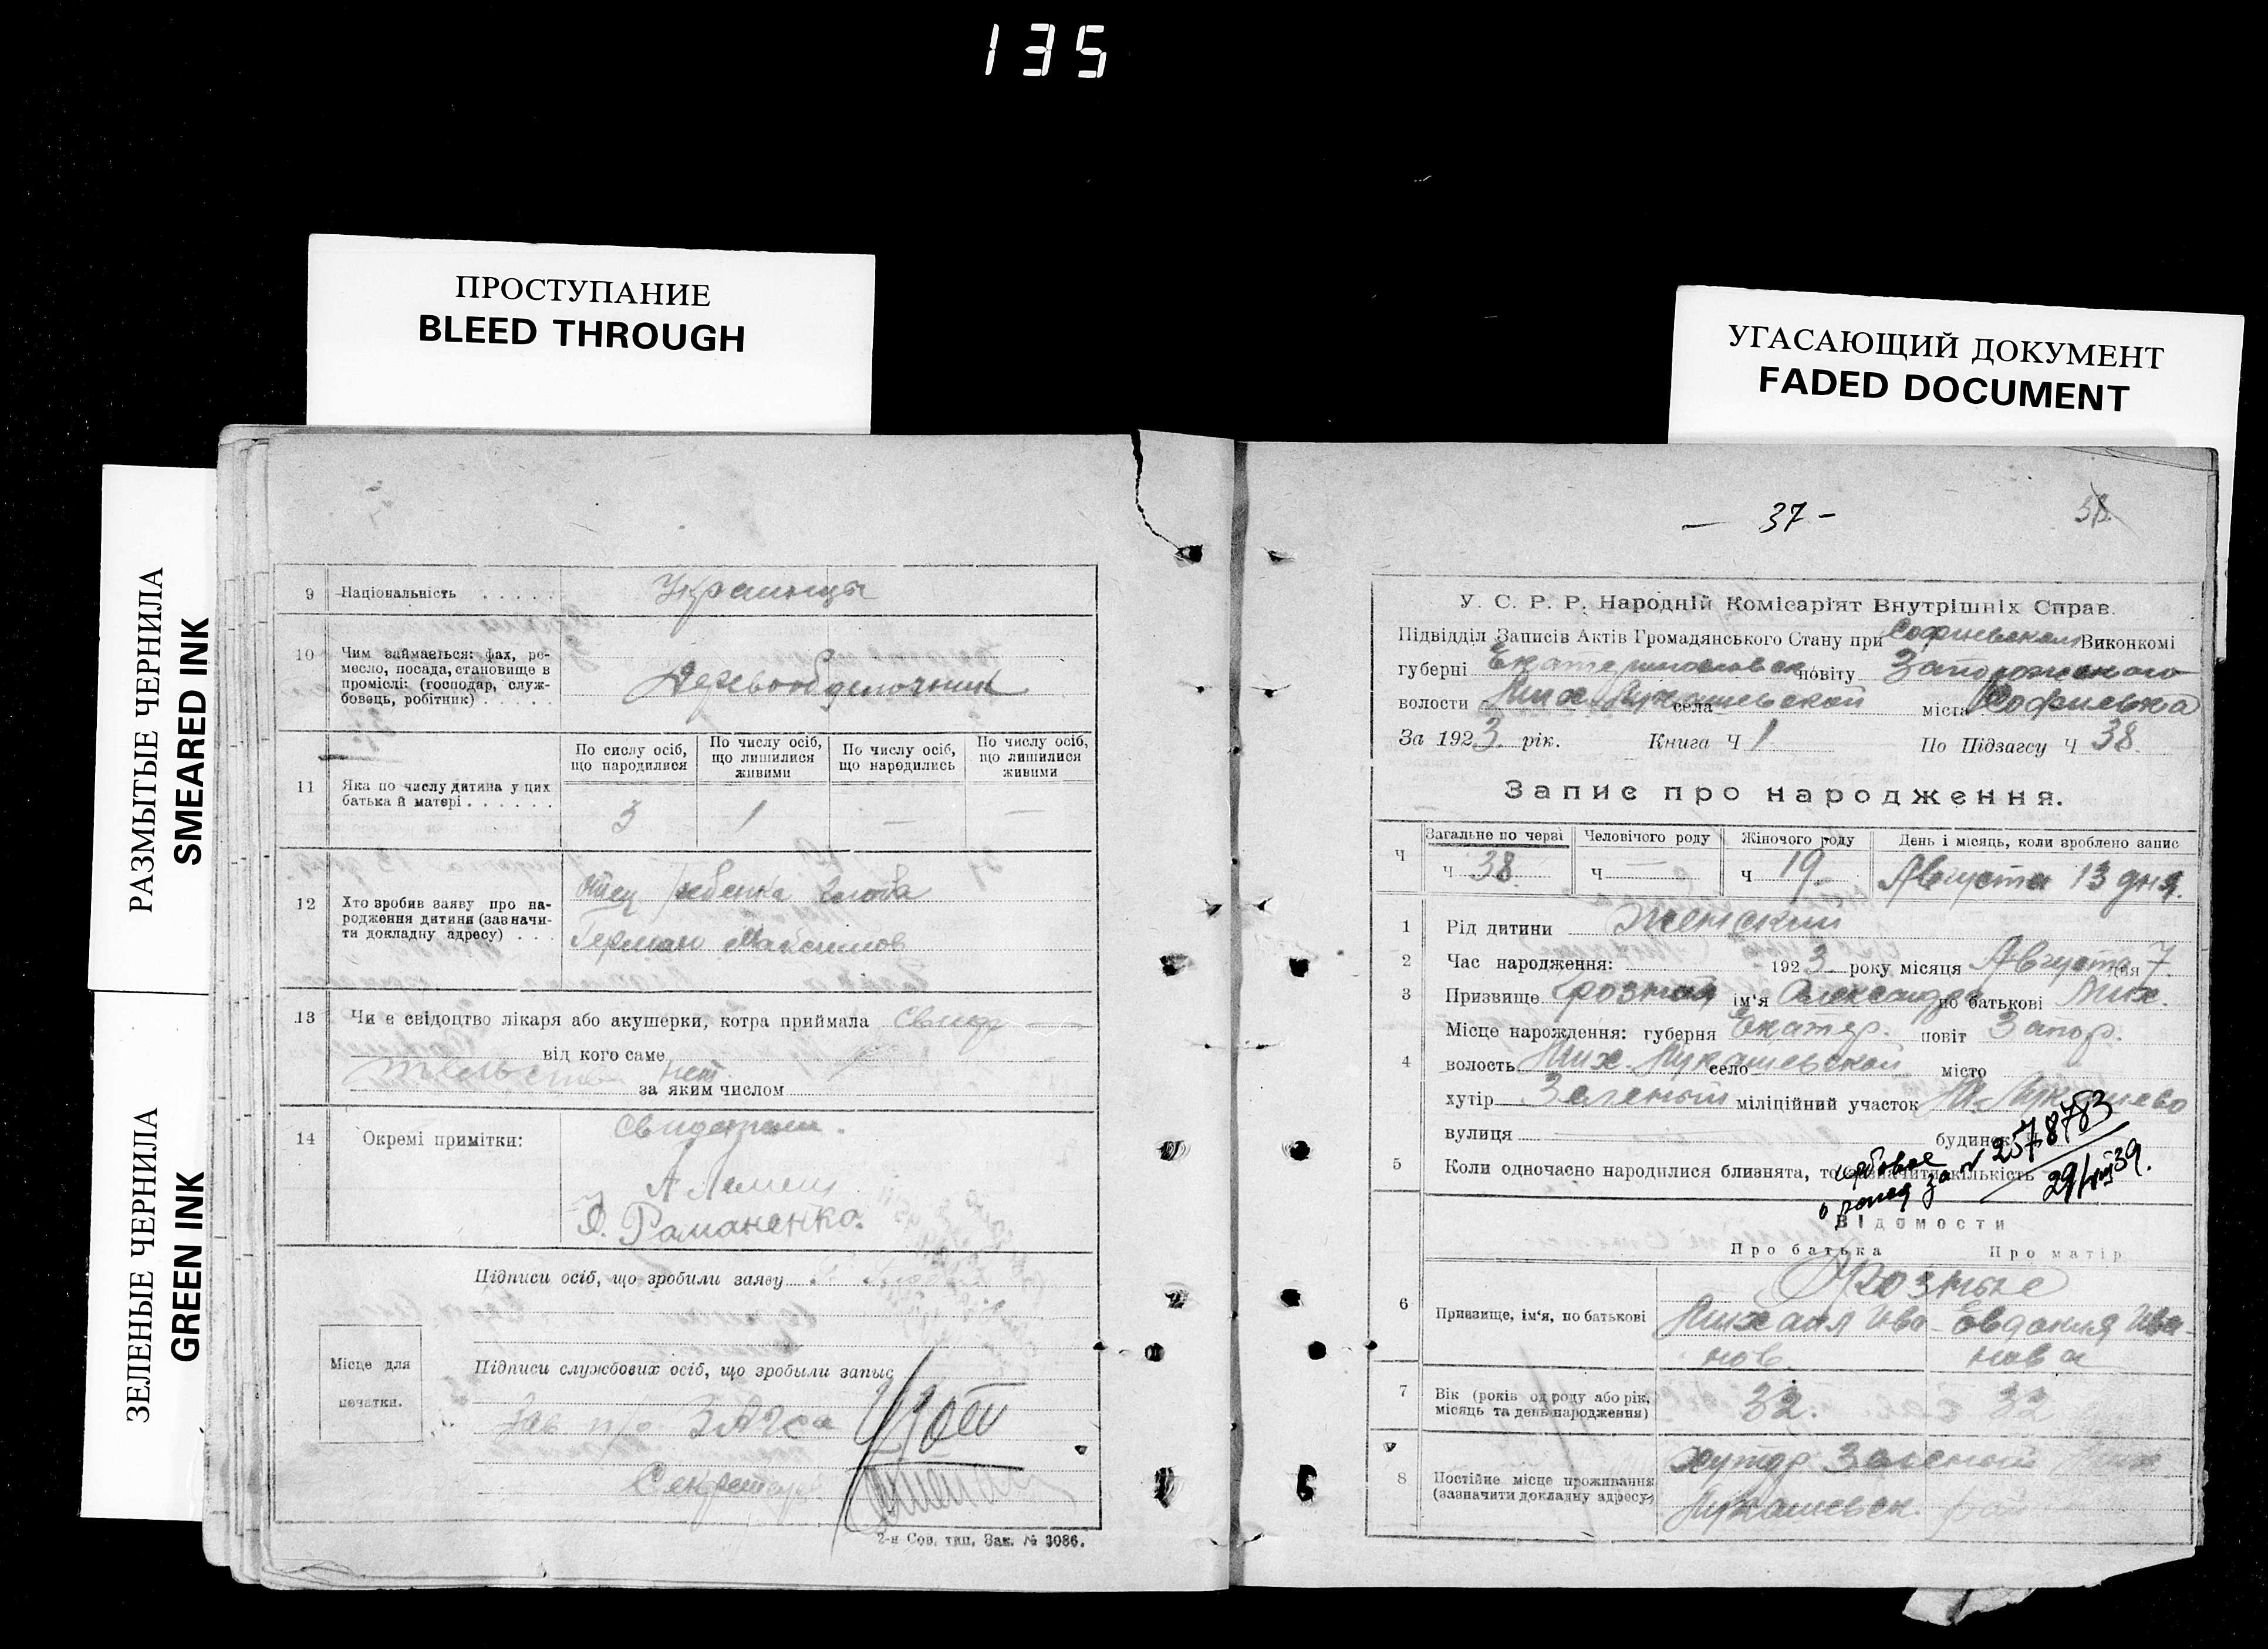 135
ПРОСТУПАНИЕ
BLEED THROUGH
УГАСАЮЩИЙ ДОКУМЕНТ
FADED DOCUMENT
РАЗМЫТЫЕ ЧЕРНИЛА
SMEARED INK
ЗЕЛЕНЫЕ ЧЕРНИЛА
GREEN INK
9 Національність . . . . . . Украинцы
10 Чим займається: фах, ре-
месло, посада, становище в
проміслі: (господар, служ-
бовець, робітник) . . . . .
Деревообделочник
11 Яка по числу дитина у цих
батька й матері . . . . . .
По сислу осіб,
що народилися
По числу осіб,
що лишилися
живими
По числу осіб,
що народились
По числу осіб,
що лишилися
живими
3 1 — —
12 Хто зробив заяву про на-
родження дитини (зазначи-
ти докладну адресу) . . .
Отец ребенка
Герман Максимов
13 Чи є свідоцтво лікаря або акушерки, котра приймала
від кого саме нет
за яким числом
14 Окремі примітки:
Свидетели.
А Лемец
Ф. Романенко.
Підписи осіб, що зробили заяву
Підписи службових осіб, що зробыли запыс
Місце для
печатки.
Зав. п/о ЗАГСа
Секретарь
2-я Сов. тип. Зак. № 3086.
— 37 —
У. С. Р. Р. Народній Комісаріят Внутрішніх Справ.
Підвідділ Записів Актів Громадянського Стану при Софиевском Виконкомі
губерні Екатеринославск повіту Запорожского
волости Мих Лукашевской села міста Софиевка
За 1923 рік. Книга Ч 1 По Підзагсу Ч 38
Запис про народження.
Ч Загальне по черзі Человічого роду Жіночого роду День і місяць, коли зроблено запис
Ч 38. Ч — Ч 19 Августа 13 дня.
1 Рід дитини Женский
2 Час народження: 1923 року місяця Августа дня 7
3 Призвище Грозная ім'я Александра по батькові Мих.
4 Місце нарождення: губерня Екатер. повіт Запор.
волость Мих. Лукашевской село місто
хутір Зеленый міліційний участок М. Лукашево
вулиця будинок
5 Коли одночасно народилися близнята, то зазначити кількість
гербовое
№ 2578783
29/VIII 39.
Відомости
Про батька Про матір
Грозные
6 Призвище, ім'я, по батькові
Михаил Ива- Евдокия Ива-
нов. нова
7 Вік (років од роду або рік,
місяць та день народження)
32. 32
8 Постійне місце проживання
(зазначити докладну адресу)
хутор Зеленый Мих
Лукашевск. рай